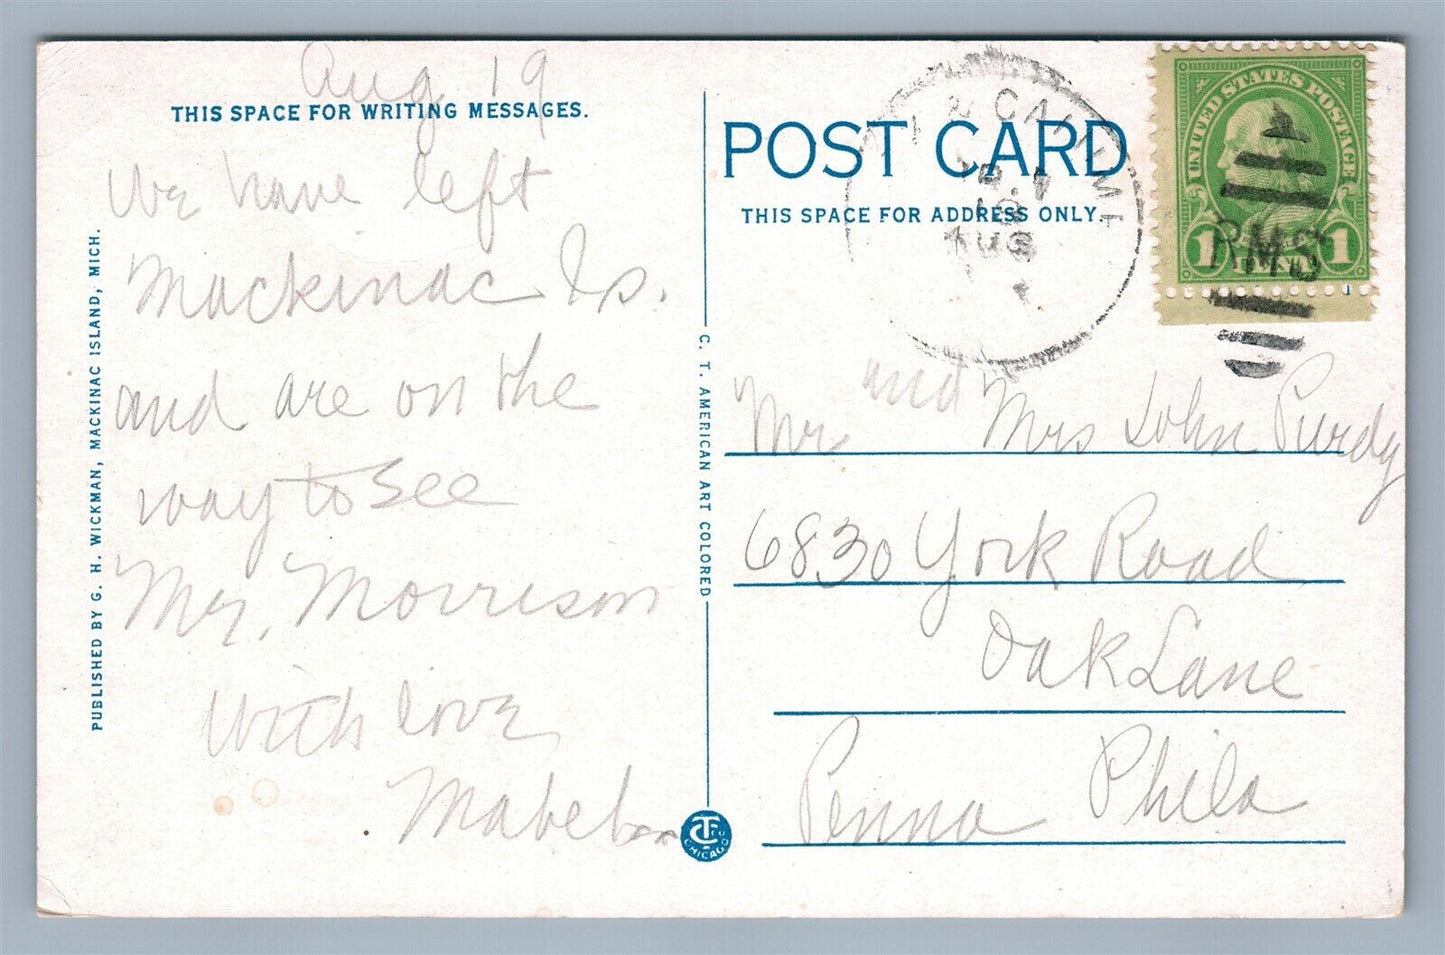 Aug 19
THIS SPACE FOR WRITING MESSAGES.
We have left
Mackinac Is.
and are on the
way to see
Mr. Morrison
With love
Mabel
PUBLISHED BY G. H. WICKMAN, MACKINAC ISLAND, MICH.
C. T. AMERICAN ART COLORED
CHICAGO
POST CARD
THIS SPACE FOR ADDRESS ONLY.
AUG
UNITED STATES POSTAGE
1 1
RMS
Mr and Mrs John Purdy
6830 York Road
Oak Lane
Phila
Penna